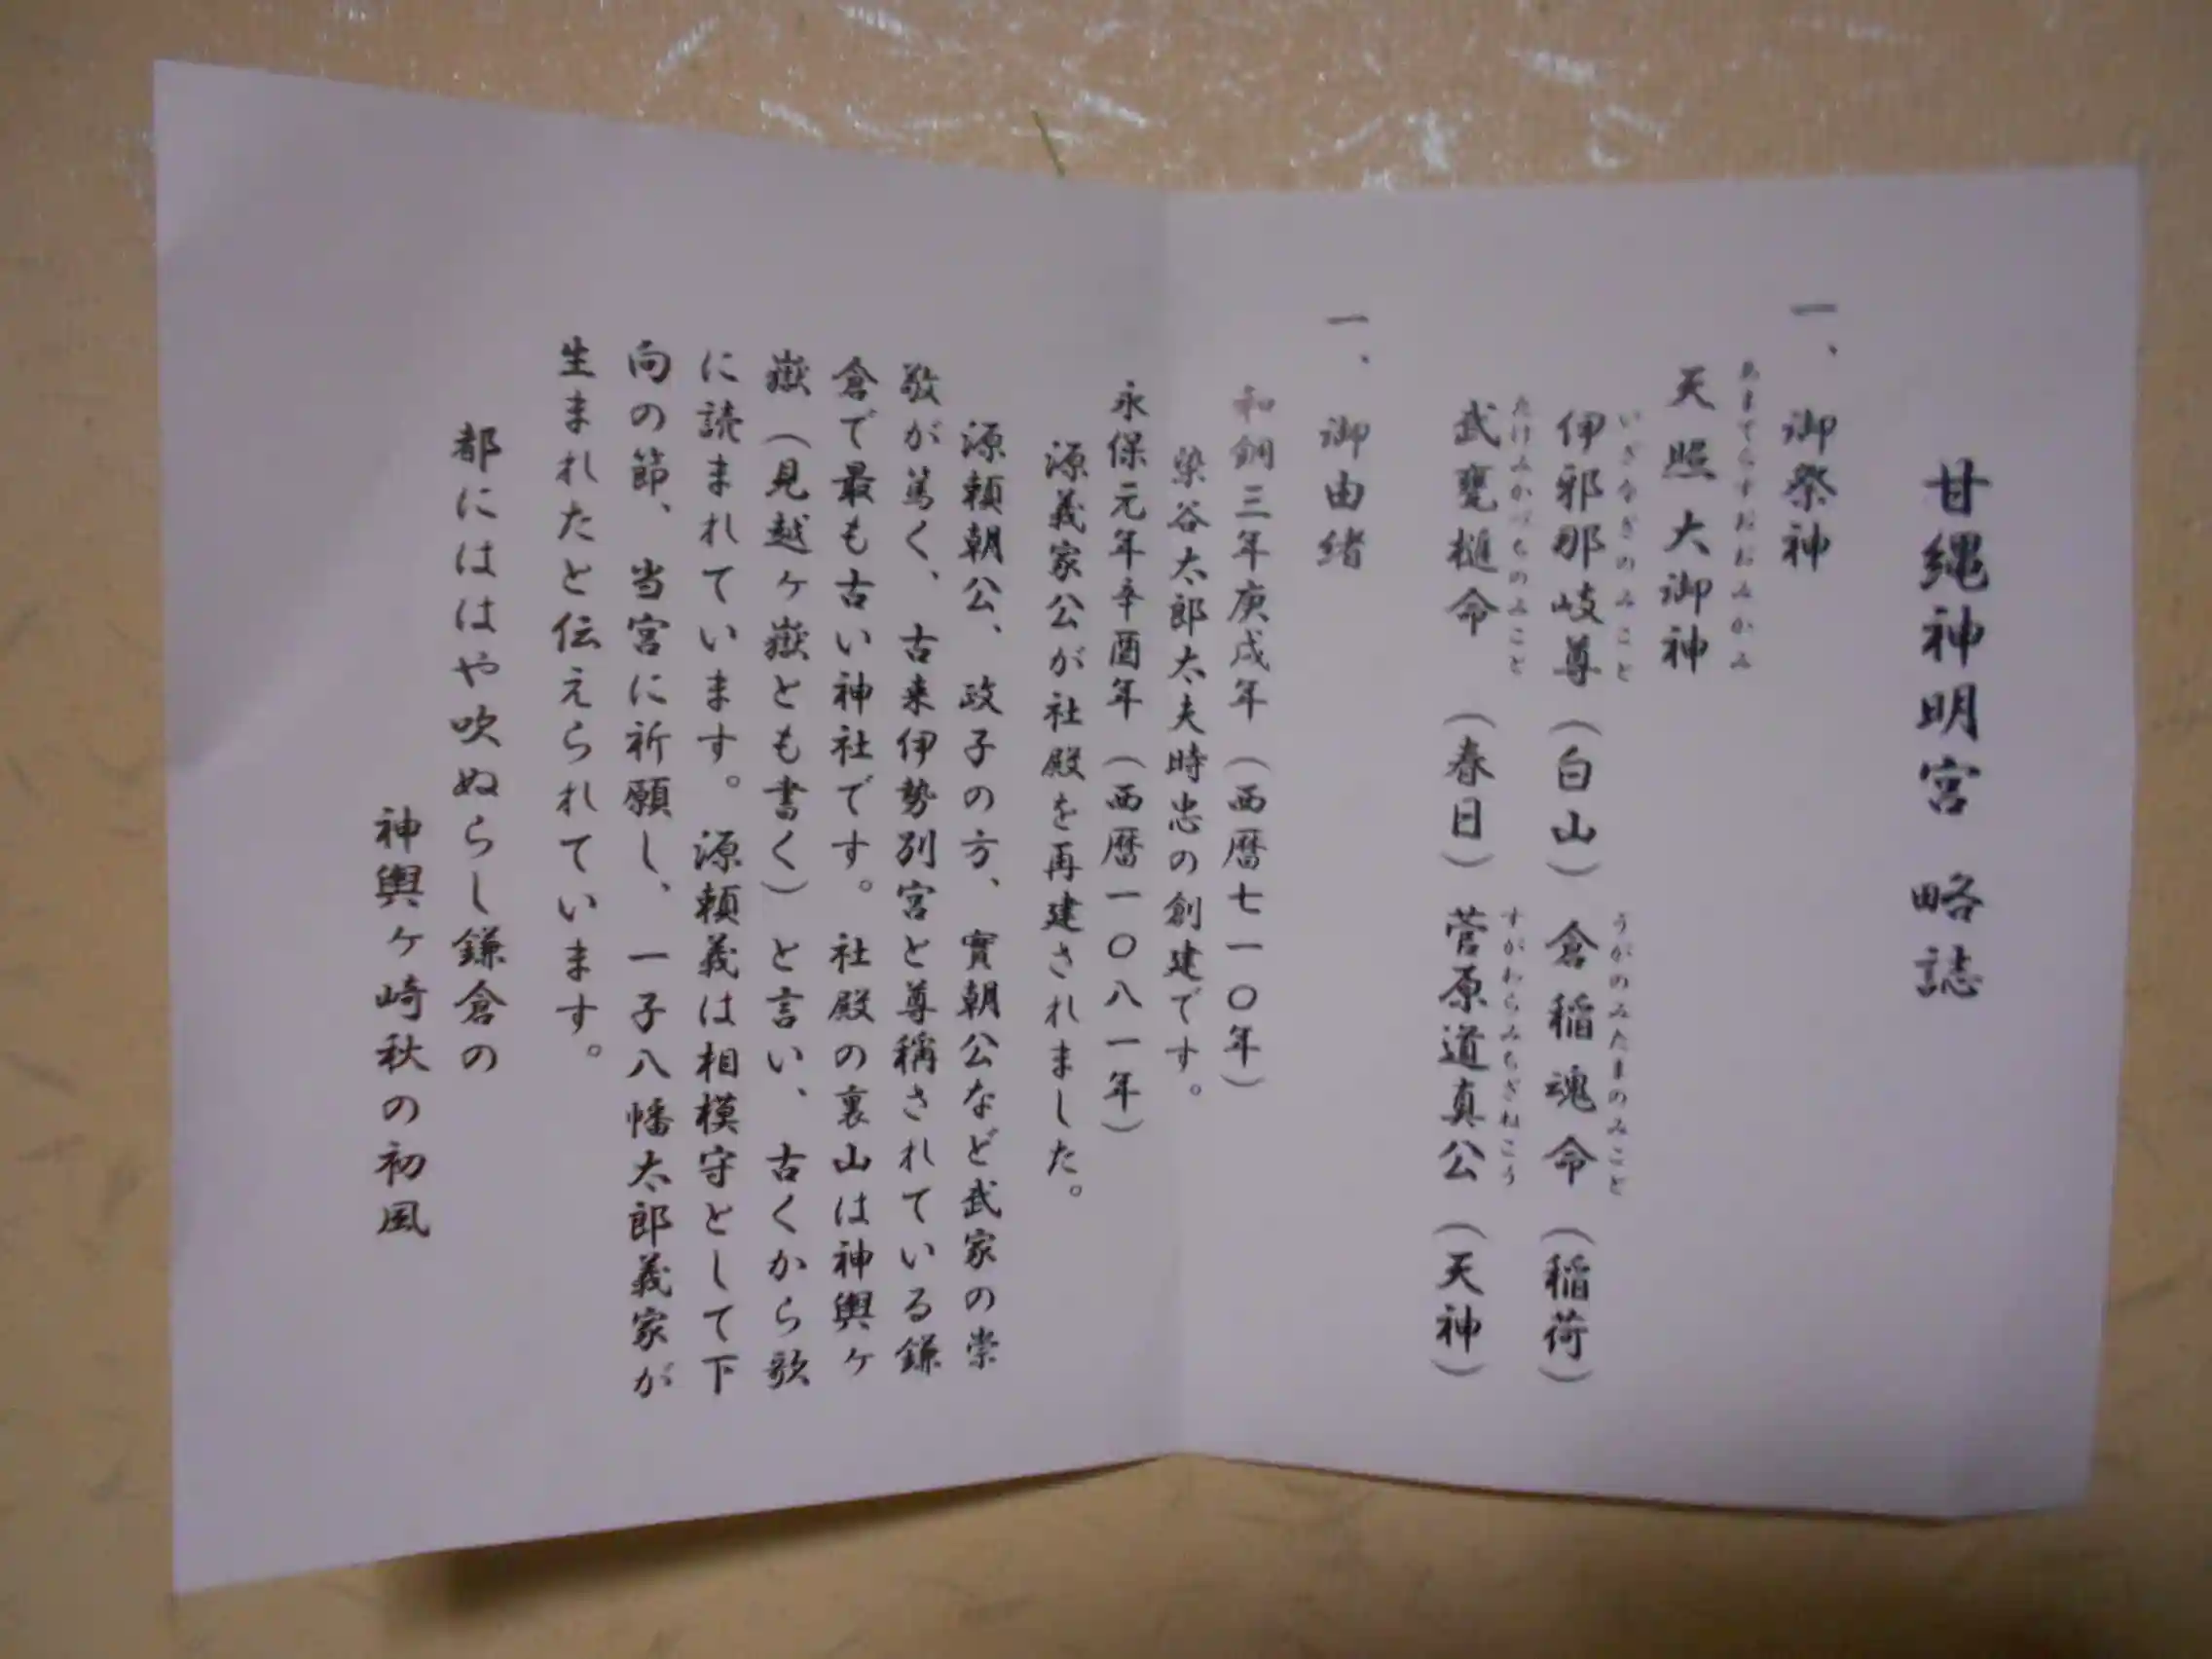 甘縄神明宮 略誌
一、御祭神
あまてらすおおみかみ
天照大御神
いざなぎのみこと うがのみたまのみこと
伊邪那岐尊（白山）倉稲魂命（稲荷）
たけみかづちのみこと すがわらみちざねこう
武甕槌命（春日）菅原道真公（天神）
一、御由緒
和銅三年庚戌年（西暦七一〇年）
染谷太郎太夫時忠の創建です。
永保元年辛酉年（西暦一〇八一年）
源義家公が社殿を再建されました。
源頼朝公、政子の方、實朝公など武家の崇
敬が篤く、古来伊勢別宮と尊稱されている鎌
倉で最も古い神社です。社殿の裏山は神輿ヶ
嶽（見越ヶ嶽とも書く）と言い、古くから歌
に読まれています。源頼義は相模守として下
向の節、当宮に祈願し、一子八幡太郎義家が
生まれたと伝えられています。
都にははや吹ぬらし鎌倉の
神輿ヶ崎秋の初風